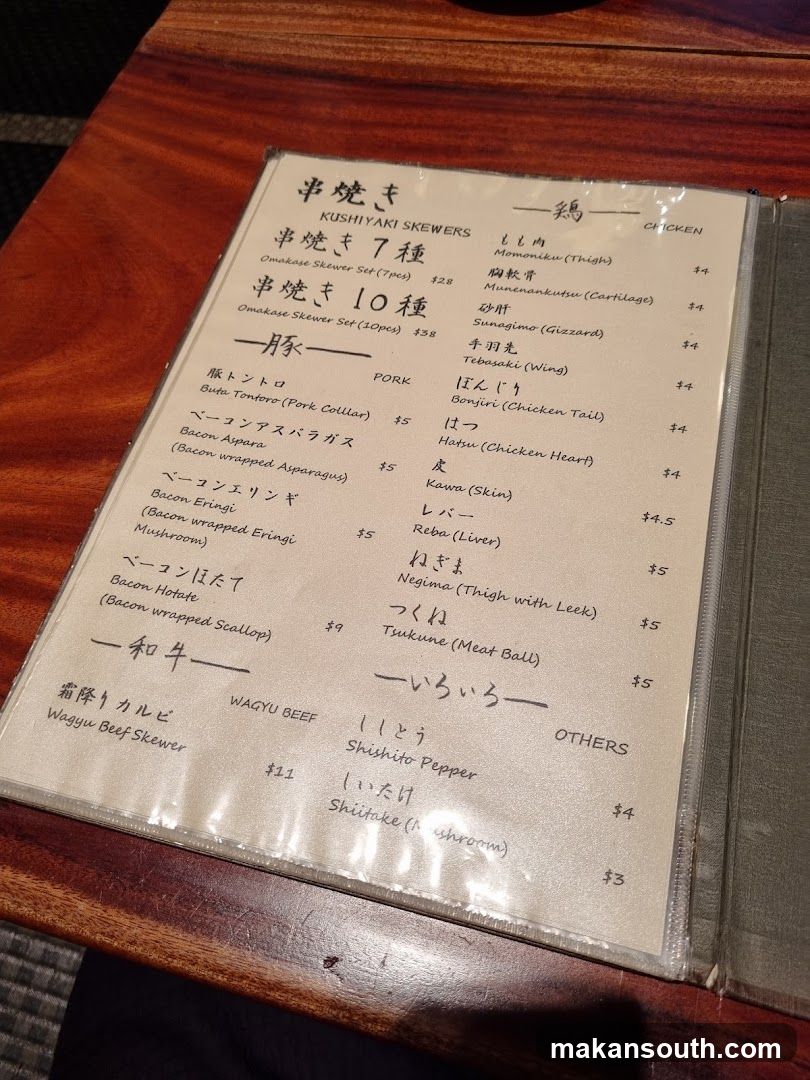 串焼き
KUSHIYAKI SKEWERS
串焼き 7種
Omakase Skewer Set (7pcs) $28
串焼き 10種
Omakase Skewer Set (10pcs) $38
豚
PORK
豚トントロ
Buta Tontoro (Pork Colllar) $5
ベーコンアスパラガス
Bacon Aspara
(Bacon wrapped Asparagus) $5
ベーコンエリンギ
Bacon Eringi
(Bacon wrapped Eringi
Mushroom) $5
ベーコンほたて
Bacon Hotate
(Bacon wrapped Scallop) $9
和牛
WAGYU BEEF
霜降りカルビ
Wagyu Beef Skewer
$11
鶏
CHICKEN
もも肉
Momoniku (Thigh) $4
胸軟骨
Munenankutsu (Cartilage) $4
砂肝
Sunagimo (Gizzard) $4
手羽先
Tebasaki (Wing) $4
ぼんじり
Bonjiri (Chicken Tail) $4
はつ
Hatsu (Chicken Heart) $4
皮
Kawa (Skin) $4.5
レバー
Reba (Liver) $5
ねぎま
Negima (Thigh with Leek) $5
つくね
Tsukune (Meat Ball) $5
いろいろ
OTHERS
ししとう
Shishito Pepper $4
しいたけ
Shiitake (Mushroom) $3
makansouth.com